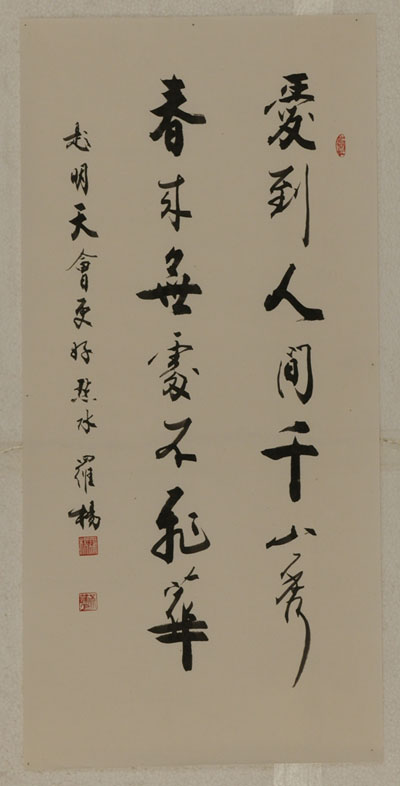 愛到人間千山秀
春來無處不飛華
起明天會更好 羅楊